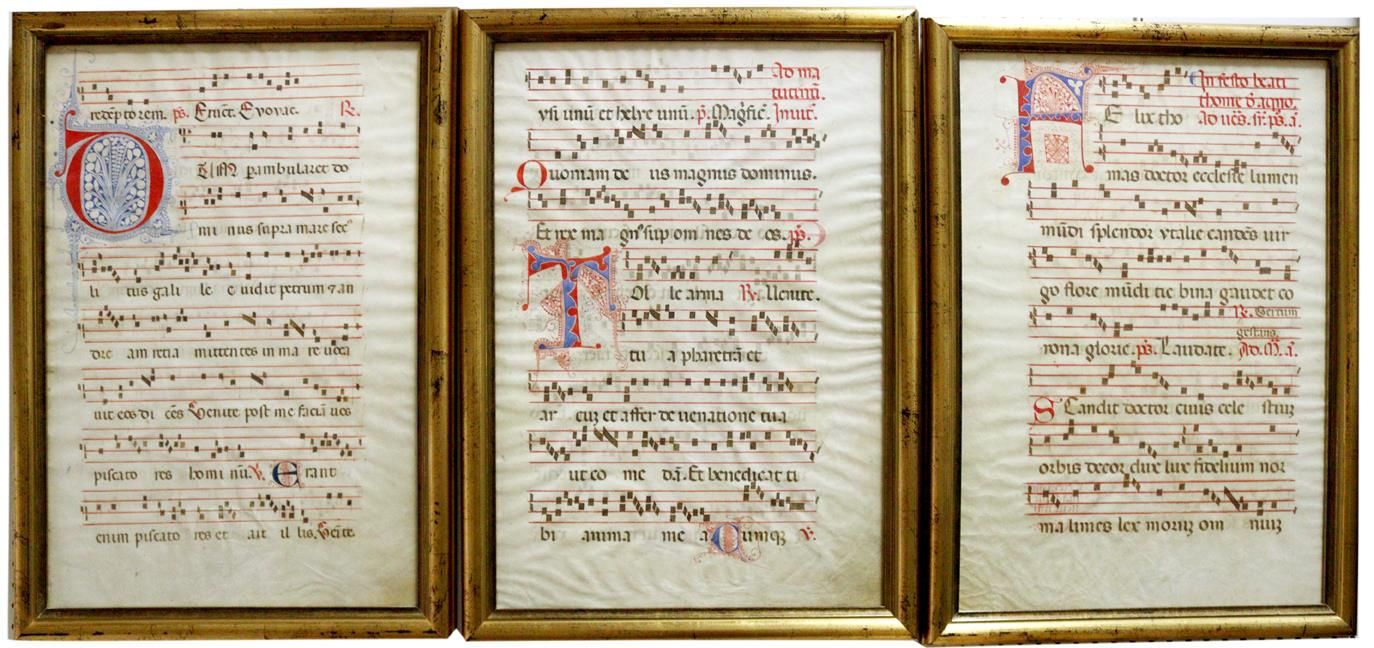 rezep to rem. ps. Ernet. Evovae. R.
DUM pambularet do
mi nus supra mare sec
li tus gali le e vidit petrum & an
dre am retia mittentes in ma re voca
vit eos di cēs Venite post me faciā vos
piscato res homi nū. V. Erant
enim piscato res et ait il lis. Venite
Ad ma
tutinū.
vsi unū et helye unū. p. Magnific. Invit.
Quoniam de us magnus dominus.
Et rex ma gn' sup om nes de os. ps.
TOl le arma R. Venite.
tu a pharetrā et
ar cuz et affer de venatione tua
ut co me dā. Et benedicat ti
bi anima me a Cumqz V.
In festo beati
thome d aqno.
FElix tho Ad vēs. sr ps. a.
mas doctor ecclesie lumen
mūdi splendor ytalie candēs vir
go flore mūdi cie bina gaudet co
R. Certum
gestans.
rona glorie. ps. Laudate. Ad. M. a.
SCandit doctor civis cele stiuz
orbis decor dux lux fidelium nor
ma limes lex moruz om niuz